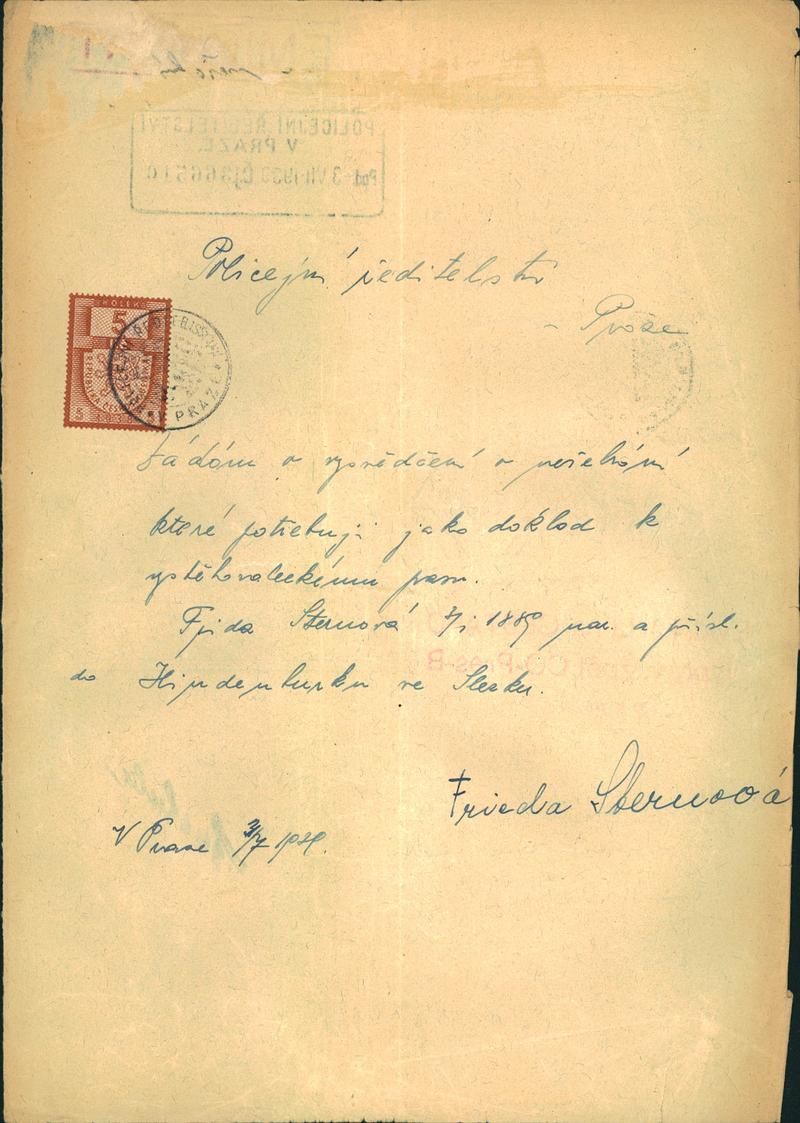 POLICEJNÍ ŘEDITELSTVÍ
V PRAZE
Pod. -3 VII. 1939
Policejní ředitelství
v Praze
KOLEK
5
V PRAZE
Žádám o vysvědčení o
které potřebuji jako doklad k
vystěhovaleckému pasu.
Frida Sternová 7/1 1889 nar. a přísl.
do Hindenburku ve Slezku.
Frieda Sternová
V Praze 3/7 1939.